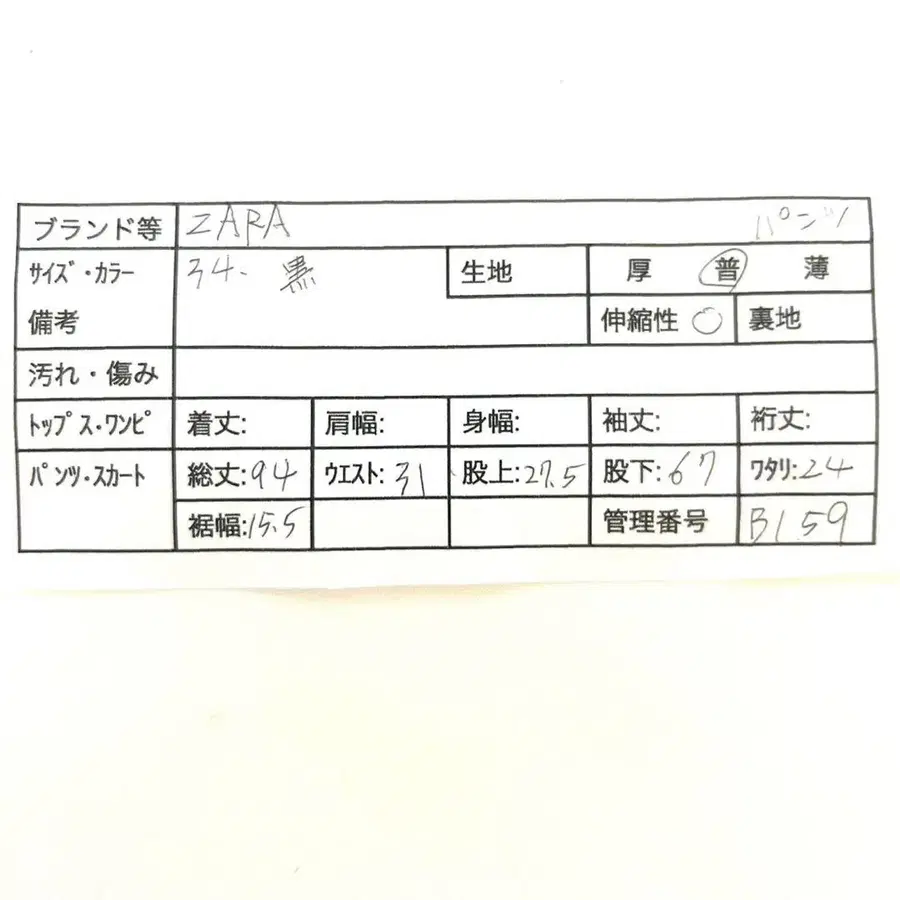 ブランド等 ZARA パンツ
サイズ・カラー 34. 黒 生地 厚 普 薄
備考 伸縮性 ○ 裏地
汚れ・傷み
トップス・ワンピ 着丈: 肩幅: 身幅: 袖丈: 裄丈:
パンツ・スカート 総丈:94 ウエスト:31 股上:27.5 股下:67 ワタリ:24
裾幅:15.5 管理番号 B159